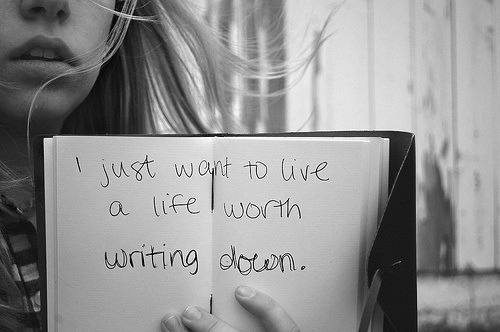 I just want to live
a life worth
writing down.